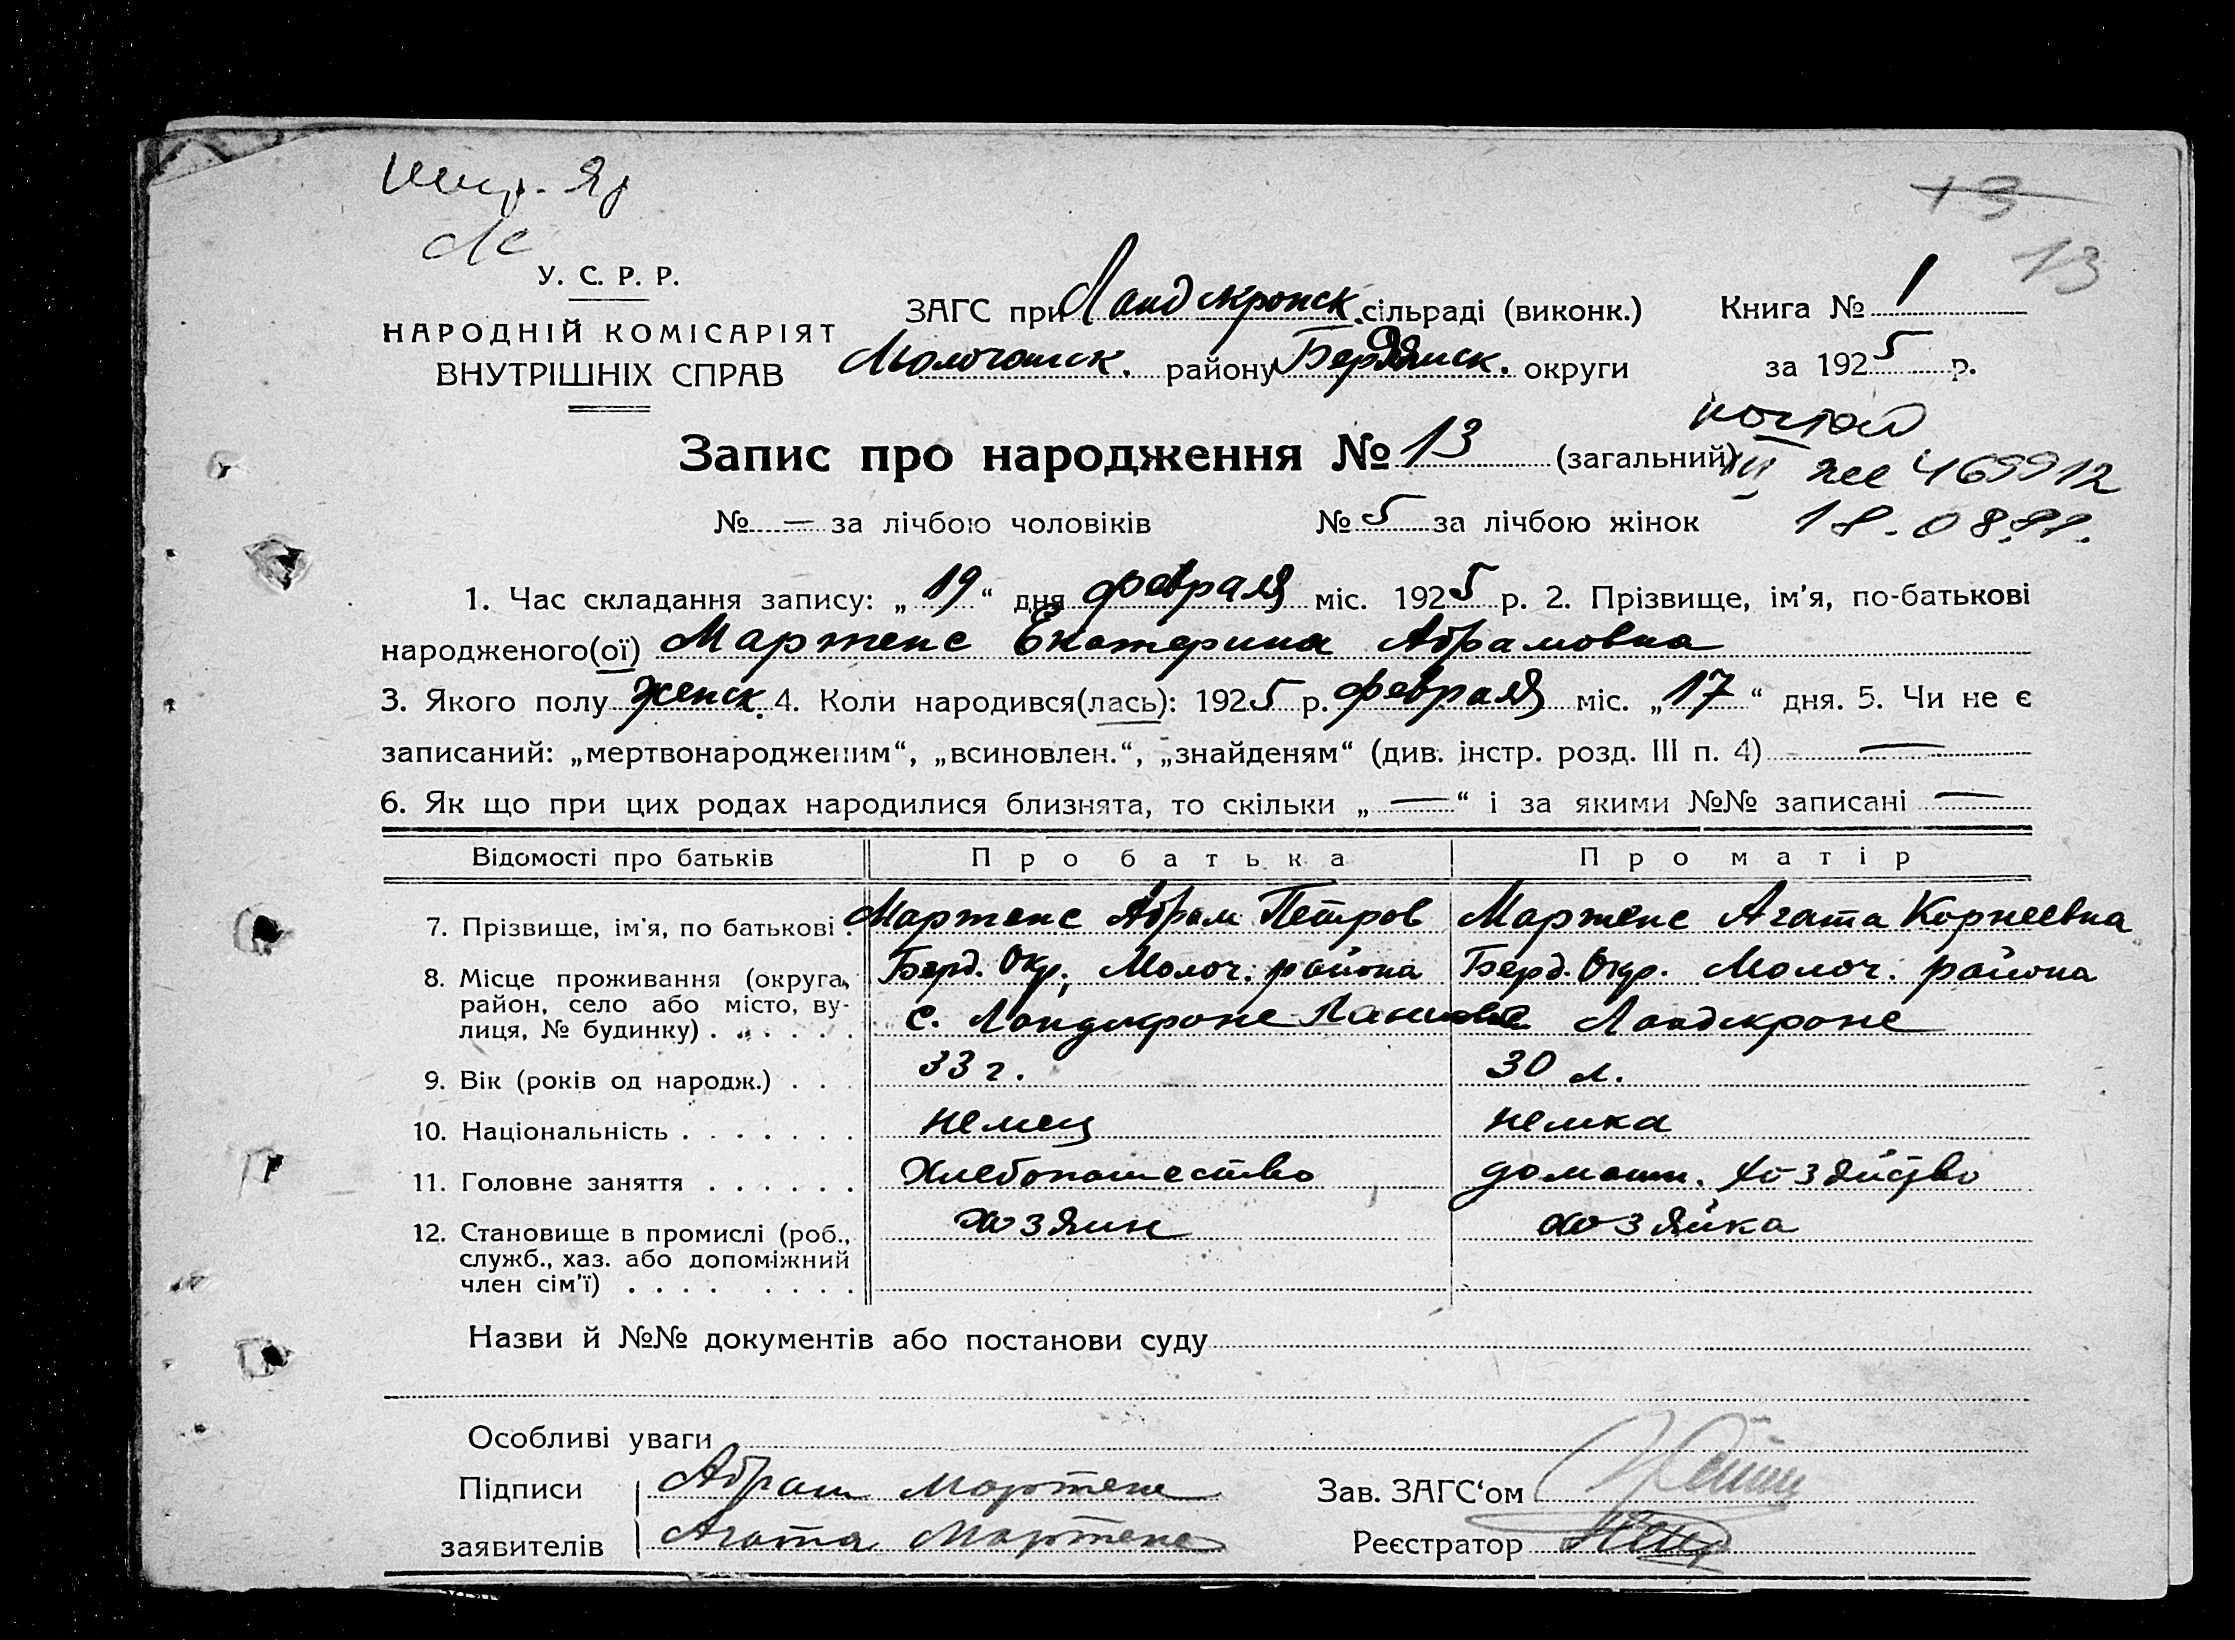 13
13
У. С. Р. Р.
НАРОДНІЙ КОМІСАРІЯТ
ВНУТРІШНІХ СПРАВ
ЗАГС при Ландскронск. сільраді (виконк.)
Молочанск. району Бердянск. округи
Книга № 1
за 1925 р.
Запис про народження № 13 (загальний)
III 469912
18.08.
№ — за лічбою чоловіків № 5 за лічбою жінок
1. Час складання запису: „19“ дня февраля міс. 1925 р. 2. Прізвище, ім’я, по-батькові
народженого(ої) Мартенс Екатерина Абрамовна
3. Якого полу женск. 4. Коли народився(лась): 1925 р. февраля міс. „17“ дня. 5. Чи не є
записаний: „мертвонародженим“, „всиновлен.“, „знайденям“ (див. інстр. розд. III п. 4) —
6. Як що при цих родах народилися близнята, то скільки „—“ і за якими №№ записані —
Відомості про батьків Про батька Про матір
7. Прізвище, ім’я, по батькові . Мартенс Абрам Петров Мартенс Агата Корнеевна
8. Місце проживання (округа, район, село або місто, вулиця, № будинку) . . . . . .
Берд. Окр. Молоч. района Берд. Окр. Молоч. района
с. Ландскроне Ландскроне
9. Вік (років од народж.) . . . 33 г. 30 л.
10. Національність . . . . . . . немец немка
11. Головне заняття . . . . . . Хлебопашество домашн. хозяйство
12. Становище в промислі (роб., служб., хаз. або допоміжний член сім’ї) . . . . . . . .
хозяин хозяйка
Назви й №№ документів або постанови суду
Особливі уваги
Підписи Абрам Мартенс Зав. ЗАГС‘ом
заявителів Агата Мартенс Реєстратор